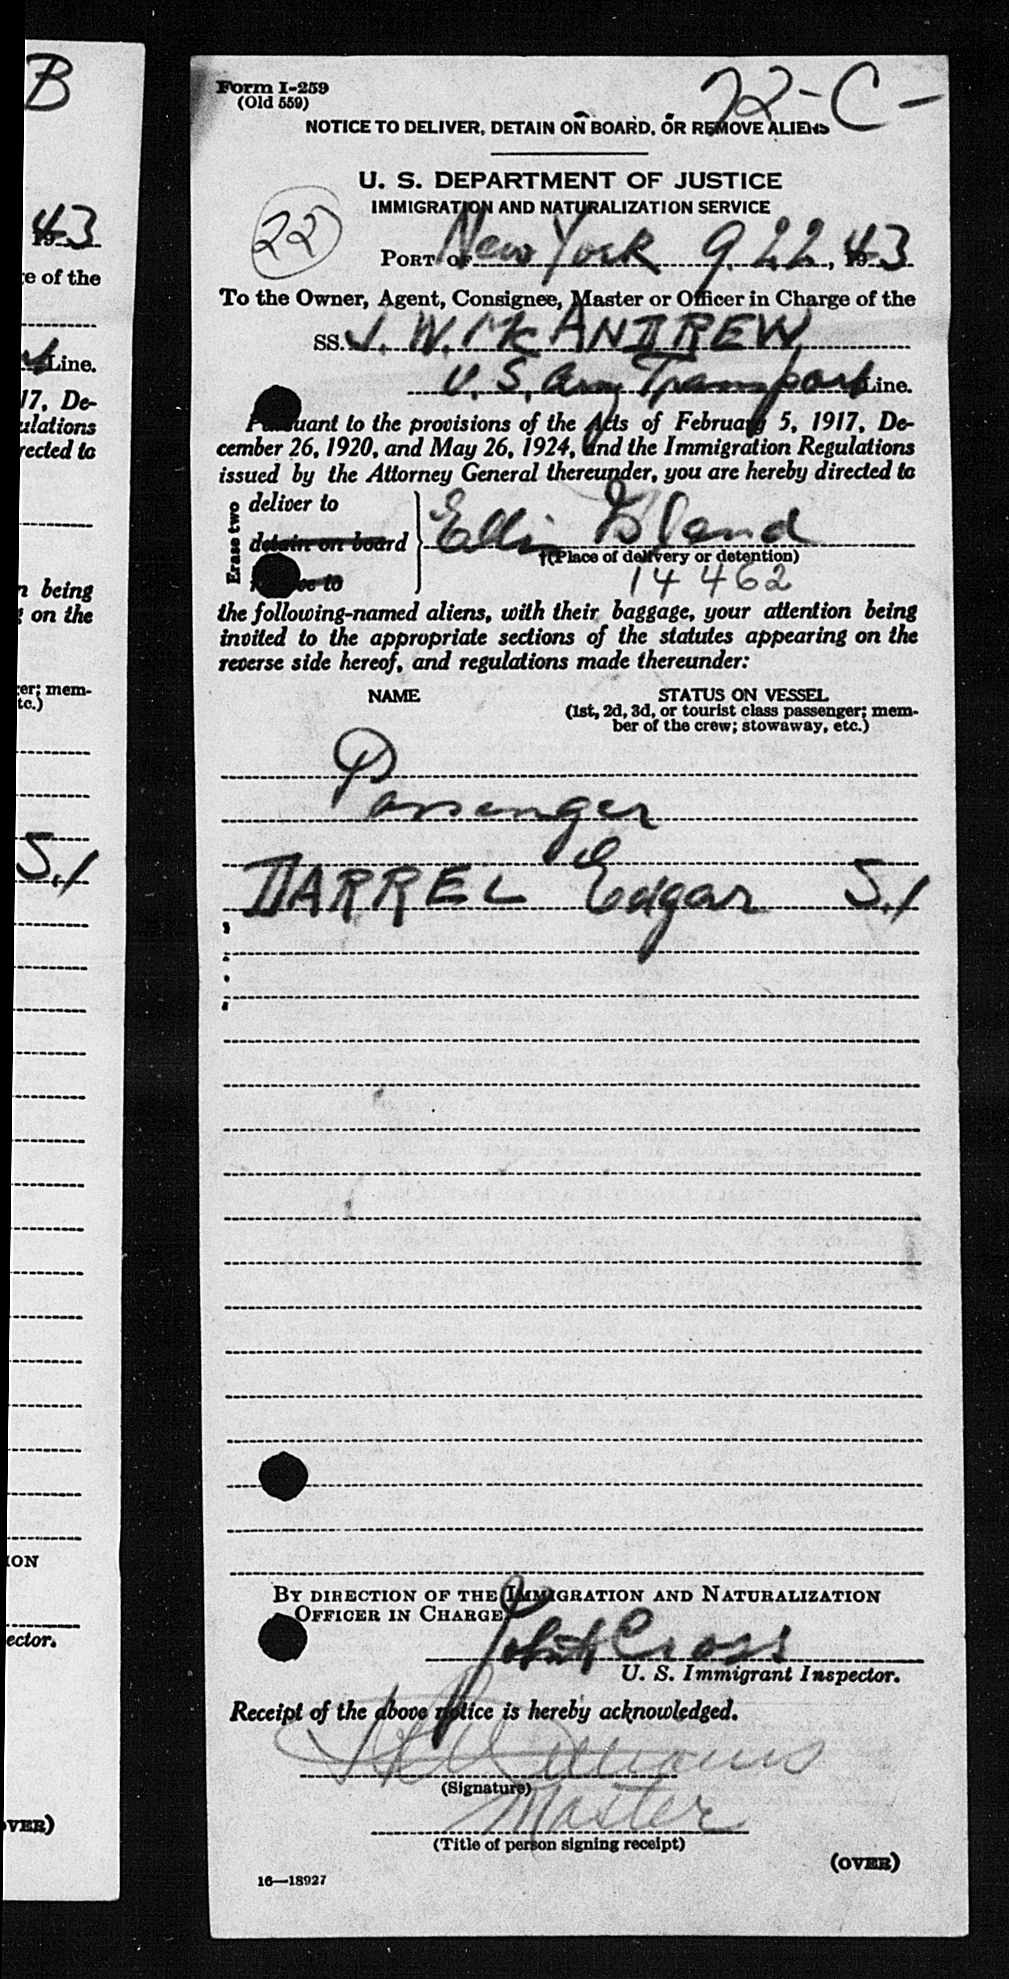 B
43
e of the
Line.
17, De-
ulations
rected to
n being
on the
er; mem-
tc.)
S.1
ION
ector.
OVER)
Form I-259
(Old 559)
22-C-
NOTICE TO DELIVER, DETAIN ON BOARD, OR REMOVE ALIENS
U. S. DEPARTMENT OF JUSTICE
IMMIGRATION AND NATURALIZATION SERVICE
22
PORT OF New York 9.22, 1943
To the Owner, Agent, Consignee, Master or Officer in Charge of the
SS. J. W. Mc ANDREW
U. S. Army Transport Line.
Pursuant to the provisions of the Acts of February 5, 1917, De-
cember 26, 1920, and May 26, 1924, and the Immigration Regulations
issued by the Attorney General thereunder, you are hereby directed to
Erase two
deliver to
detain on board
remove to
Ellis Island
†(Place of delivery or detention)
14462
the following-named aliens, with their baggage, your attention being
invited to the appropriate sections of the statutes appearing on the
reverse side hereof, and regulations made thereunder:
NAME
STATUS ON VESSEL
(1st, 2d, 3d, or tourist class passenger; mem-
ber of the crew; stowaway, etc.)
Passenger
DARREL Edgar S.1
BY DIRECTION OF THE IMMIGRATION AND NATURALIZATION
OFFICER IN CHARGE
Cross
U. S. Immigrant Inspector.
Receipt of the above notice is hereby acknowledged.
Williams
(Signature)
Master
(Title of person signing receipt)
(OVER)
16—18927